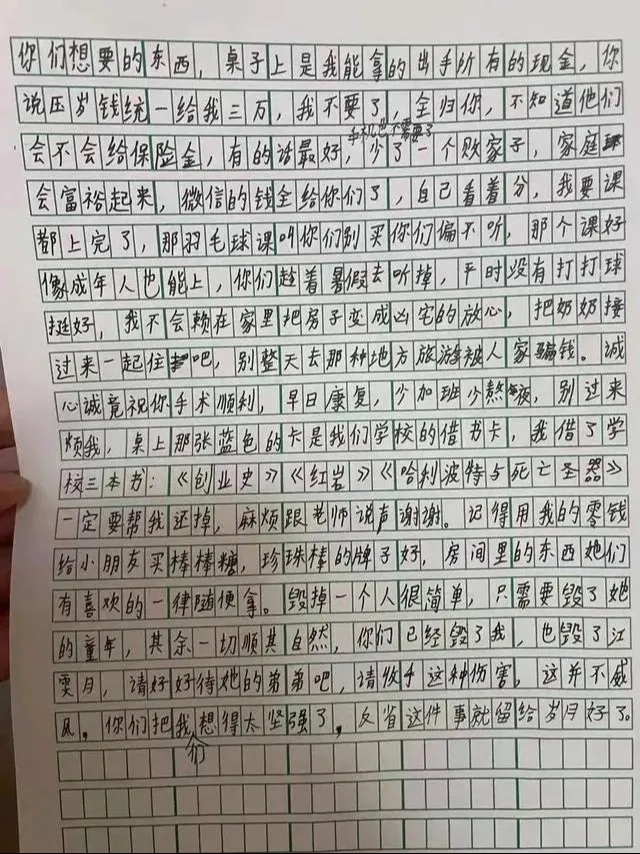 你们想要的东西，桌子上是我能拿的出手所有的现金，你
说压岁钱统一给我三万，我不要了，全归你，不知道他们
手机也不需要了
会不会给保险金，有的话最好，少了一个败家子，家庭
会富裕起来，微信的钱全给你们了，自己看着分，我要课
都上完了，那羽毛球课叫你们别买你们偏不听，那个课好
像成年人也能上，你们趁着暑假去听掉，平时没有打打球
挺好，我不会赖在家里把房子变成凶宅的放心，把奶奶接
过来一起住吧，别整天去那种地方旅游被人家骗钱。诚
心诚意祝你手术顺利，早日康复，少加班少熬夜，别过来
烦我，桌上那张蓝色的卡是我们学校的借书卡，我借了学
校三本书：《创业史》《红岩》《哈利波特与死亡圣器》
一定要帮我还掉，麻烦跟老师说声谢谢。记得用我的零钱
给小朋友买棒棒糖，珍珠棒的牌子好，房间里的东西她们
有喜欢的一律随便拿。毁掉一个人很简单，只需要毁了她
的童年，其余一切顺其自然，你们已经毁了我，也毁了江
雯月，请好好待她的弟弟吧，请收手这种伤害，这并不威
风。你们把我们想得太坚强了，反省这件事就留给岁月好了。